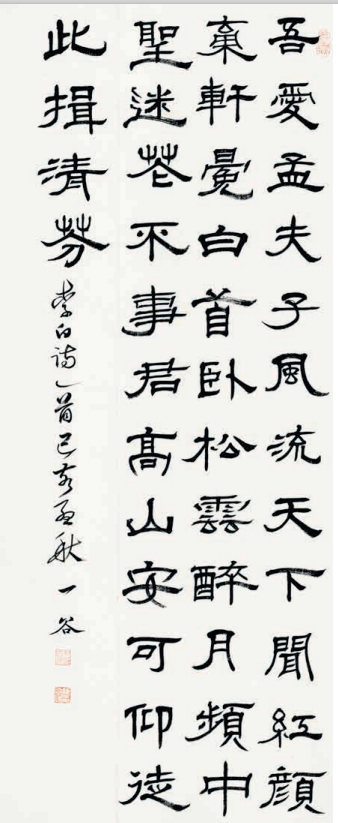 吾愛孟夫子風流天下聞紅顏
棄軒冕白首臥松雲醉月頻中
聖迷花不事君高山安可仰徒
此揖清芬李白詩一首己亥孟秋一谷